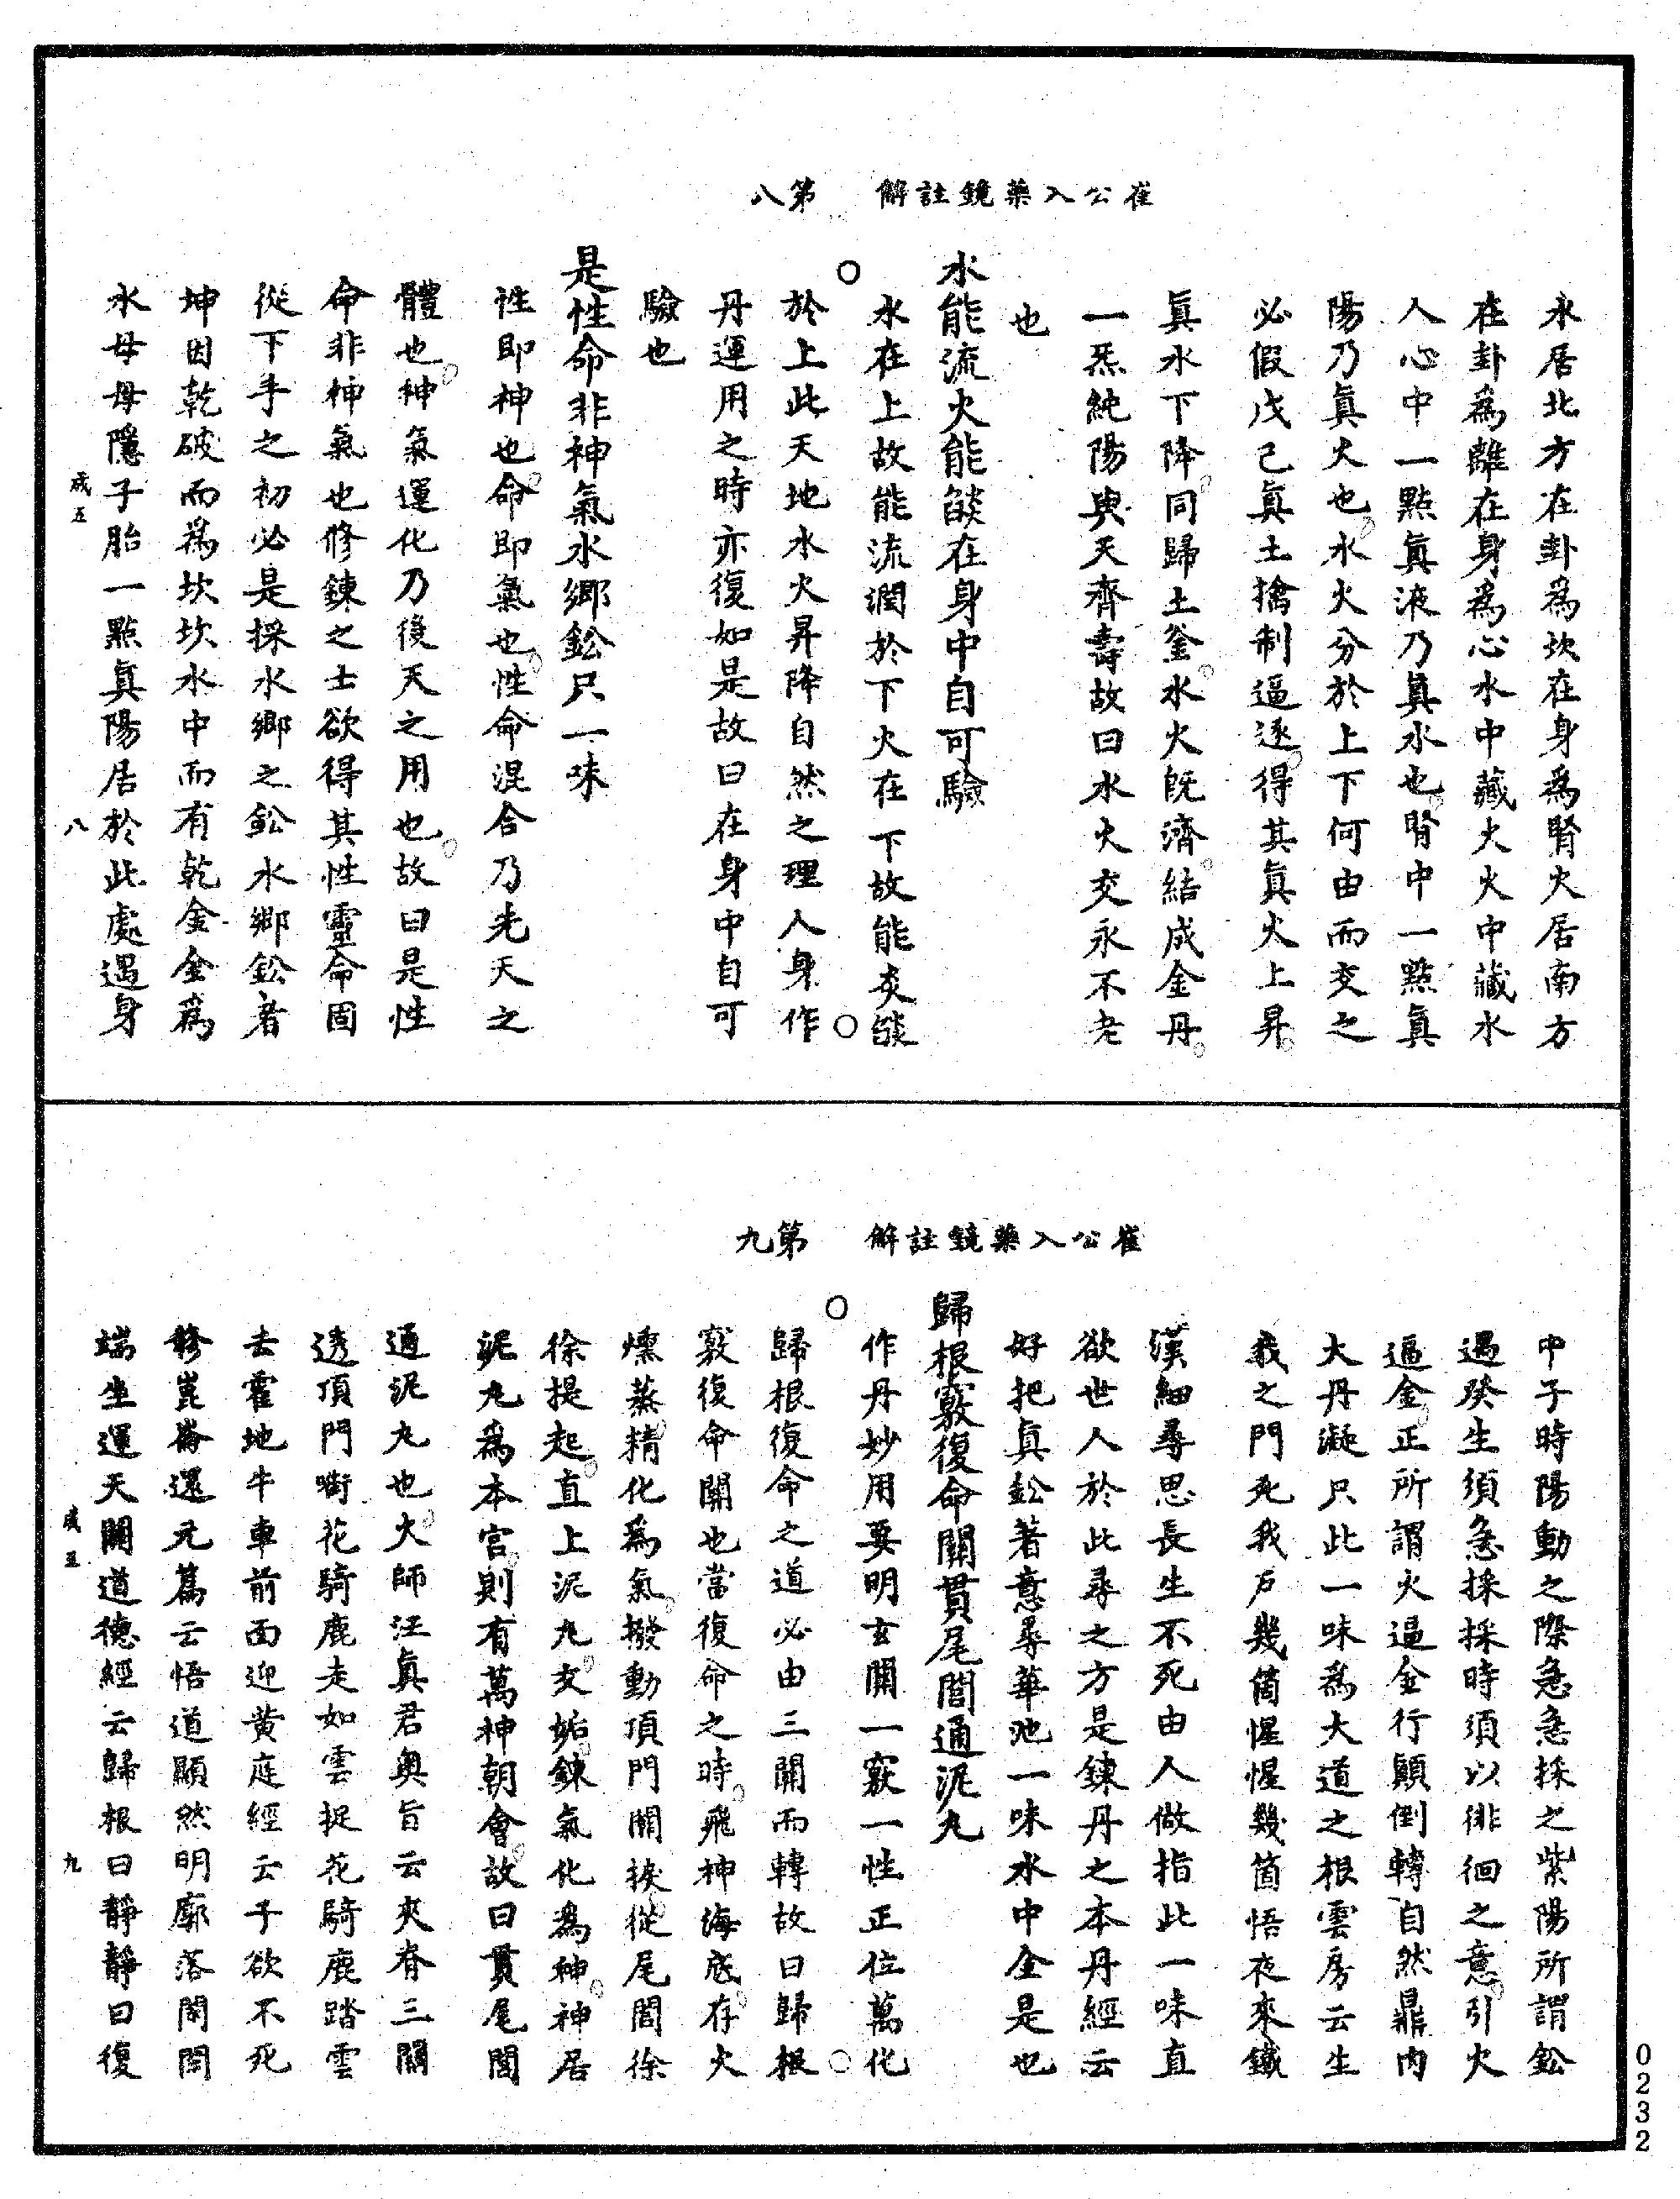 崔公入藥鏡註解　第八
水居北方在卦爲坎在身爲腎火居南方
在卦爲離在身爲心水中藏火火中藏水
人心中一點眞液乃眞水也腎中一點眞
陽乃眞火也水火分於上下何由而交之
必假戊己眞土擒制逼逐得其眞火上昇
眞水下降同歸土釜水火旣濟結成金丹
一炁純陽與天齊壽故曰水火交永不老
也
水能流火能燄在身中自可驗
水在上故能流潤於下火在下故能炎燄
於上此天地水火昇降自然之理人身作
丹運用之時亦復如是故曰在身中自可
驗也
是性命非神氣水鄉鈆只一味
性即神也命即氣也性命混合乃先天之
體也神氣運化乃後天之用也故曰是性
命非神氣也修鍊之士欲得其性靈命固
從下手之初必是採水鄉之鈆水鄉鈆者
坤因乾破而爲坎坎水中而有乾金金爲
水母母隱子胎一點眞陽居於此處遇身
咸五　八
崔公入藥鏡註解　第九
中子時陽動之際急急採之紫陽所謂鈆
遇癸生須急採採時須以徘徊之意引火
逼金正所謂火逼金行顚倒轉自然鼎內
大丹凝只此一味爲大道之根雲房云生
我之門死我戶幾箇惺惺幾箇悟夜來鐵
漢細尋思長生不死由人做指此一味直
欲世人於此尋之方是鍊丹之本丹經云
好把眞鈆著意尋華池一味水中金是也
歸根竅復命關貫尾閭通泥丸
作丹妙用要明玄關一竅一性正位萬化
歸根復命之道必由三關而轉故曰歸根
竅復命關也當復命之時飛神海底存火
燻蒸精化爲氣撥動頂門關捩從尾閭徐
徐提起直上泥丸交姤鍊氣化爲神神居
泥丸爲本宮則有萬神朝會故曰貫尾閭
通泥丸也大師汪眞君奧旨云夾脊三關
透頂門啣花騎鹿走如雲捉花騎鹿踏雲
去霍地牛車前面迎黄庭經云子欲不死
修崑崙還元篇云悟道顯然明廓落閑閑
端坐運天關道德經云歸根曰靜靜曰復
咸五　九
0232